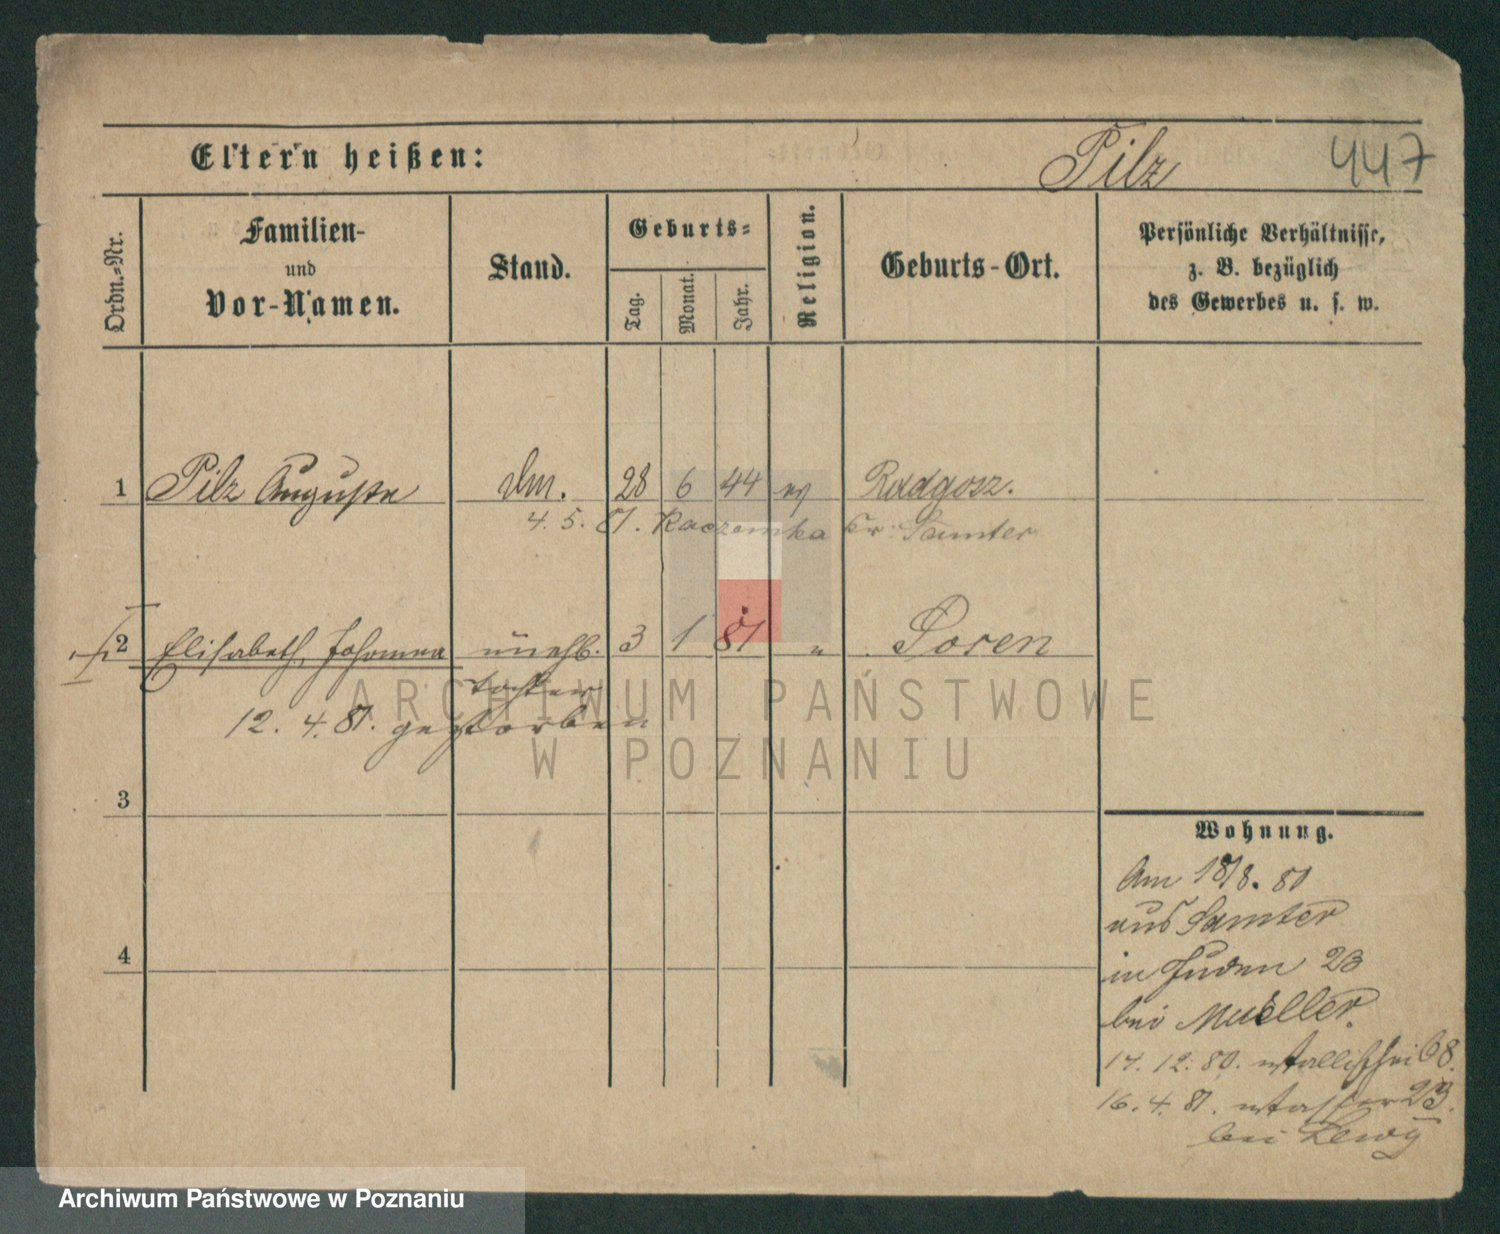 Eltern heißen:
Pilz
447
Ordn.-Nr.
Familien-
und
Vor-Namen.
Stand.
Geburts-
Tag.
Monat.
Jahr.
Religion.
Geburts-Ort.
Persönliche Verhältnisse,
z. B. bezüglich
des Gewerbes u. s. w.
1 Pilz Auguste 28 6 44 ev Radgosz.
4. 5. 81. Kaczemka Kr. Samter
2 Elisabeth, Johanna unehl. 3 1 81 " Posen
Tochter
12. 4. 81. gestorben
ARCHIWUM PAŃSTWOWE
W POZNANIU
3
4
Wohnung.
Am 18/8. 80
aus Samter
in Juden 23
bei Mueller.
14. 12. 80. Wallischei 68.
16. 4. 81. 23.
bei Lewy
Archiwum Państwowe w Poznaniu